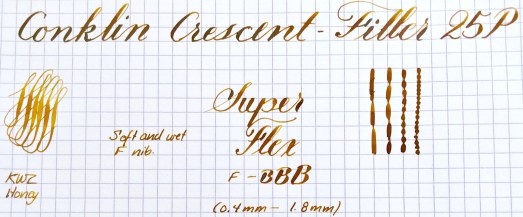 Conklin Crescent-Filler 25P
Super
Flex
Soft and wet
F nib.
F - BBB
KWZ
Honey
(0.4mm - 1.8mm)